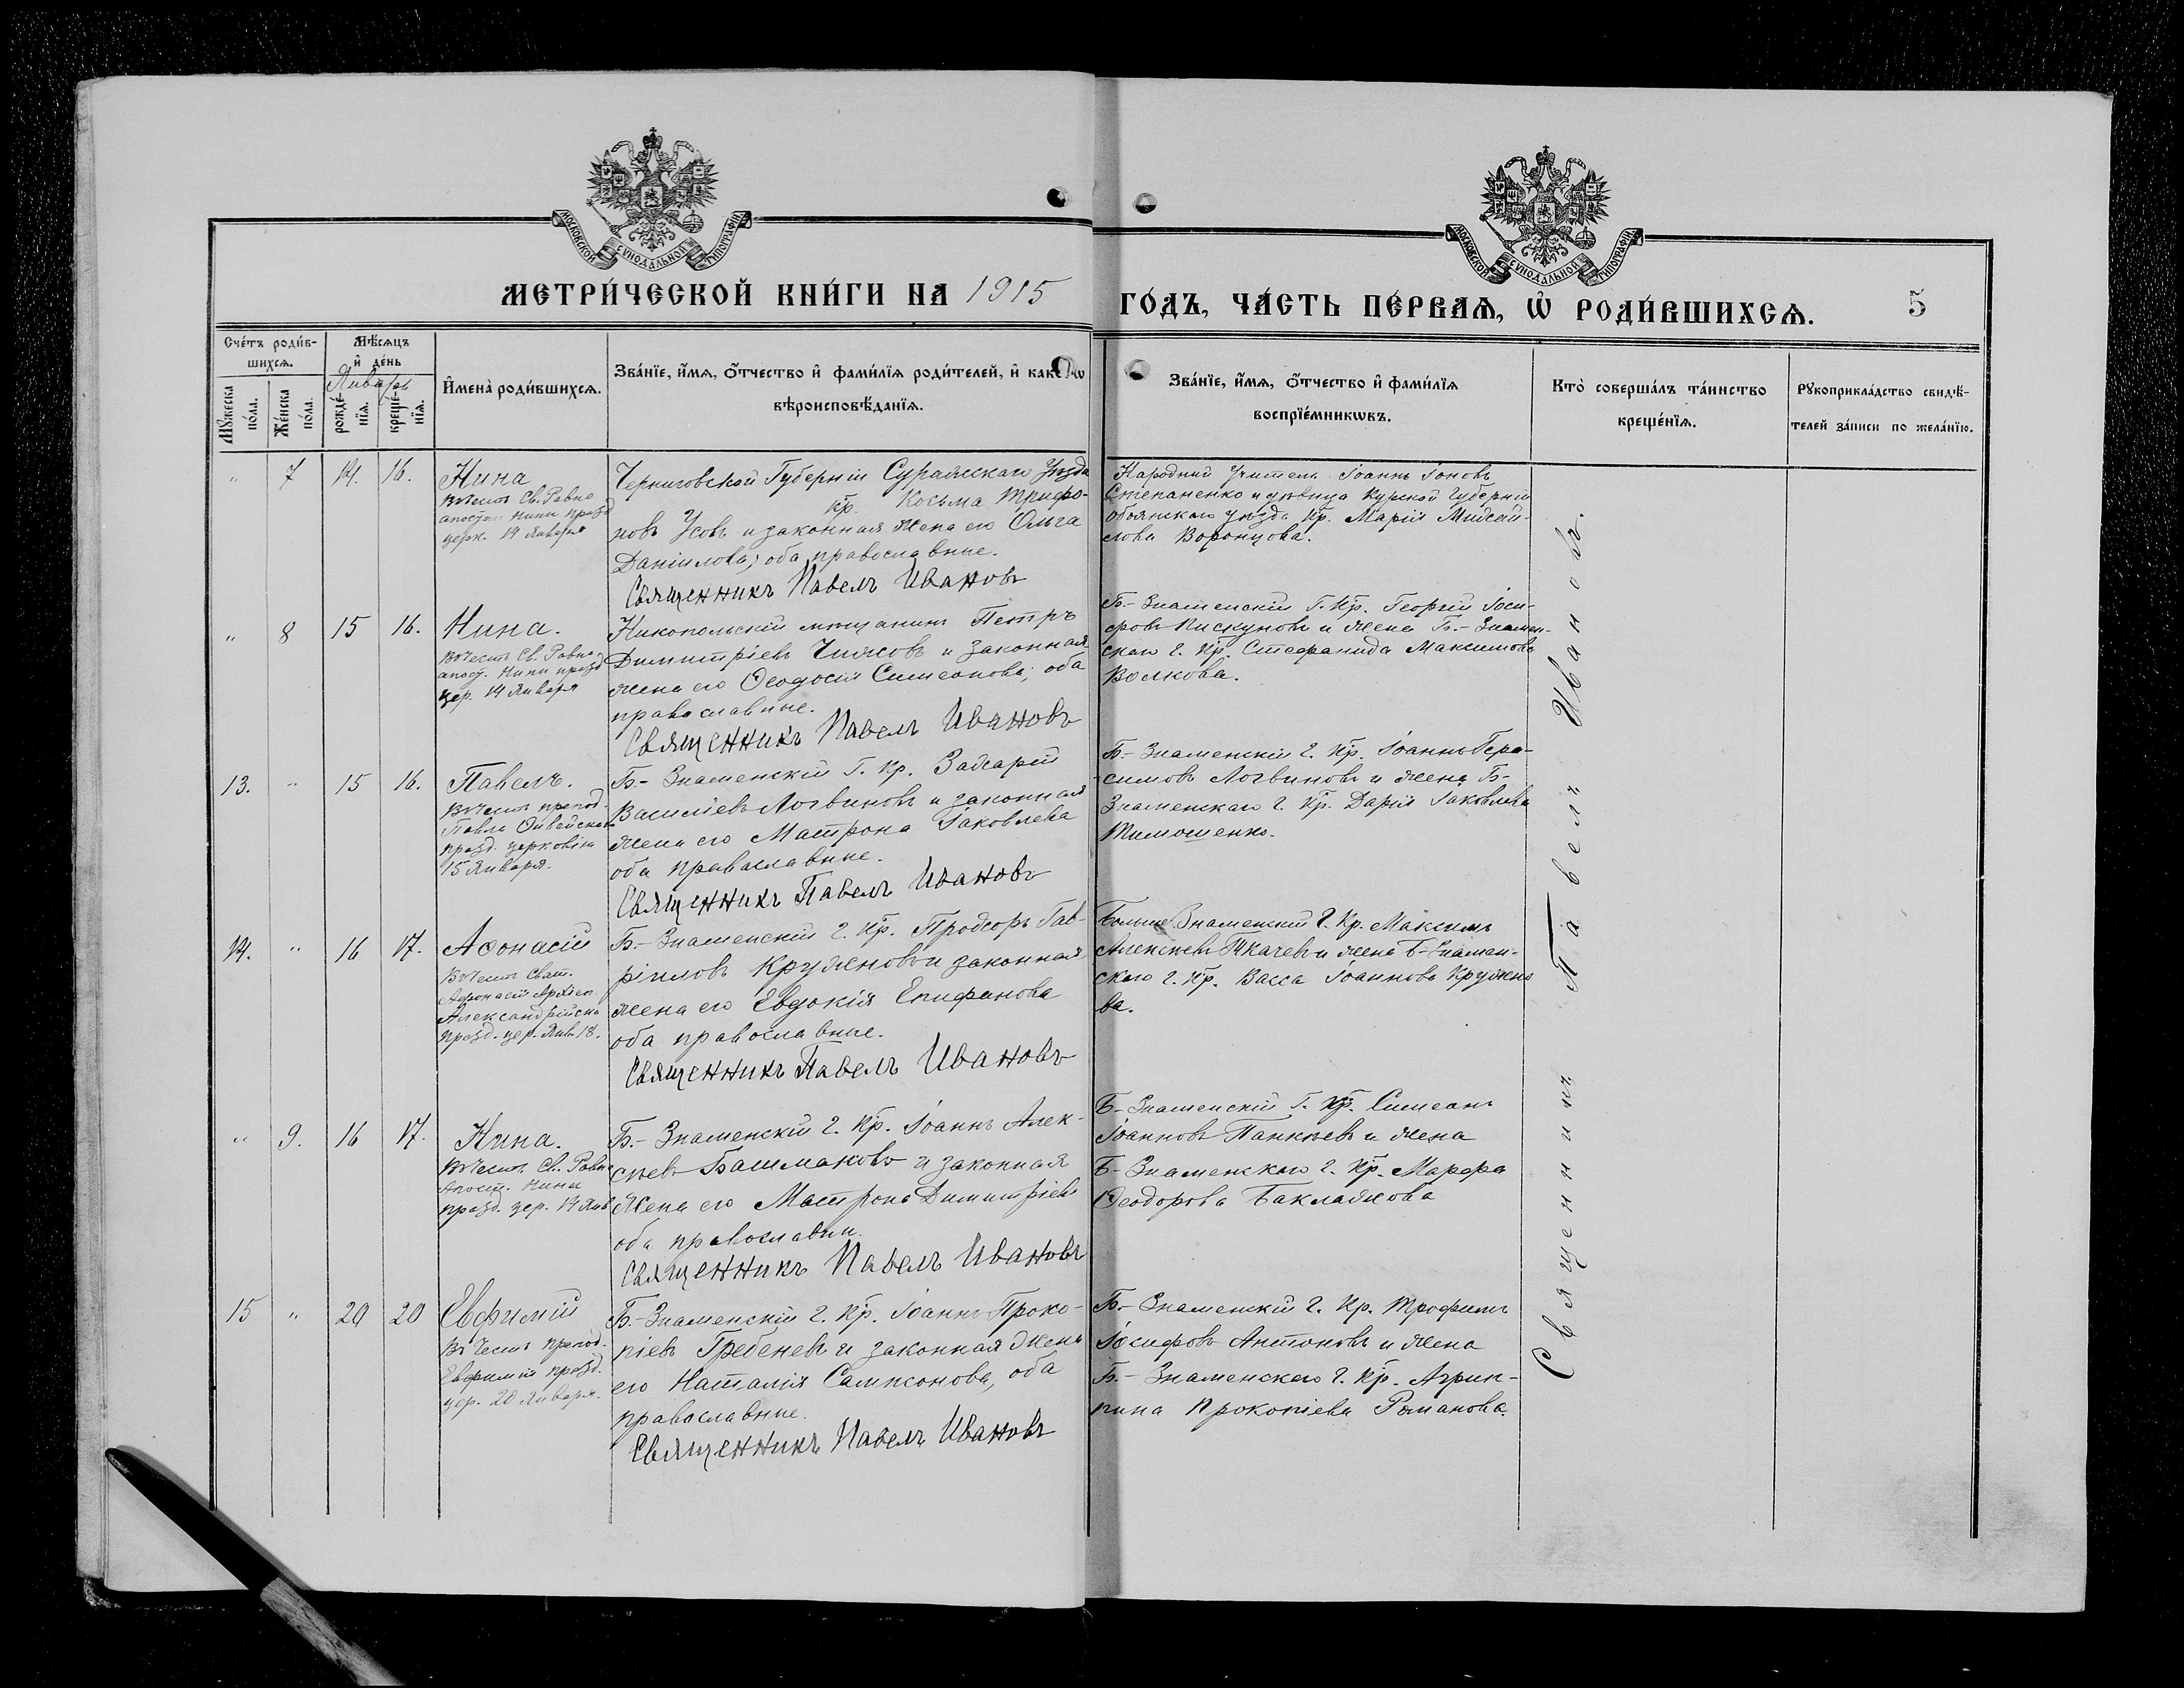 МОСКОВСКОЙ СѴНОДАЛЬНОЙ ТИПОГРАФІИ
МОСКОВСКОЙ СѴНОДАЛЬНОЙ ТИПОГРАФІИ
МЕТРИ́ЧЕСКОЙ КНИ́ГИ НА 1915
ГО́ДЪ, ЧА́СТЬ ПЕ́РВАЯ, Ѡ҆ РОДИ́ВШИХСЯ. 5
Сче́тъ роди́в-
шихся.
Мѣ́сяцъ
и҆ де́нь
Январь
Мꙋ́жеска по́ла.
Же́нска по́ла.
рожде́-нїя.
креще́-нїя.
И҆мена̀ роди́вшихся.
Зва́нїе, и҆́мя, ѻ҆́тчество и҆ фами́лїя роди́телей, и҆ како́гѡ
вѣроисповѣ́данїя.
Зва́нїе, и҆́мя, ѻ҆́тчество и҆ фами́лїя
воспрїе́мникѡвъ.
Кто̀ соверша́лъ та́инство
креще́нїя.
Рꙋкоприкла́дство свидѣ́-
телей за́писи по жела́нїю.
" 7 14. 16. Нина
Въ честь Св. Равно
апостол Нины празд
церк. 14 Января
Черниговской Губерніи Суражскаго Уѣзда
кр. Косьма Трифо-
новъ Усовъ и законная жена его Ольга
Даніилова; оба православные.
Священникъ Павелъ Ивановъ
Народный Учитель Іоаннъ Іоновъ
Степаненко и дѣвица Курской Губерніи
Обоянскаго уѣзда Кр. Марія
Воронцова.
" 8 15 16. Нина.
Въ честь Св. Равно
апост. Нины празд
цер. 14 Января
Никопольскій мѣщанинъ Петръ
Димитріевъ Чижовъ и законная
жена его Ѳеодосія Симеонова; оба
православные.
Священникъ Павелъ Ивановъ
Б.-Знаменскій Г. Кр. Георгій Іоси-
фовъ Пискуновъ и жена Б.-Знамен-
скаго г. Кр. Стефанида Максимова
Волкова.
13. " 15 16. Павелъ.
Въ честь препод.
Павла Ѳивейскаго
празд. церковію
15 Января.
Б.-Знаменскій Г. Кр. Захарій
Василіевъ Логвиновъ и законная
жена его Матрона Іаковлева
оба православные.
Священникъ Павелъ Ивановъ
Б.-Знаменскій г. Кр. Іоаннъ Гера-
симовъ Логвиновъ и жена Б-
Знаменскаго г. Кр. Дарія Іаковлева
Тимошенко.
14. " 16 17. Аѳонасій
Въ честь Свят.
Аѳонасія Архіеп
Александрійска
празд. цер. Янв. 18.
Б.-Знаменскій г. Кр. Прохоръ Гав-
ріиловъ Кружновъ и законная
жена его Евдокія Епифанова
оба православные.
Священникъ Павелъ Ивановъ
Больше Знаменскій Г. Кр. Максимъ
Алексѣевъ Ткачевъ и жена Б-Знамен-
скаго г. Кр. Васса Іоаннова Кружно
ва.
" 9. 16 17. Нина.
Въ честь Св. Равно
Апост. Нины
празд. цер. 14 Янв
Б.-Знаменскій г. Кр. Іоаннъ Алек-
сѣевъ Башмаковъ и законная
жена его Матрона Димитріева
оба православны.
Священникъ Павелъ Ивановъ
Б-Знаменскій Г. Кр. Симеонъ
Іоанновъ Панкѣевъ и жена
Б-Знаменскаго г. Кр. Марфа
Ѳеодорова Баклажкова
15 " 20 20 Евфимій
Въ честь препод.
Евфимія празд.
цер. 20 Января.
Б.-Знаменскій г. Кр. Іоаннъ Проко-
піевъ Гребеневъ и законная жена
его Наталія Сампсонова, оба
православные.
Священникъ Павелъ Ивановъ
Б.-Знаменскій г. Кр. Трофимъ
Іосифовъ Антоновъ и жена
Б.-Знаменскаго г. Кр. Агрип-
пина Прокопіева Романова.
Священникъ Павелъ Ивановъ.